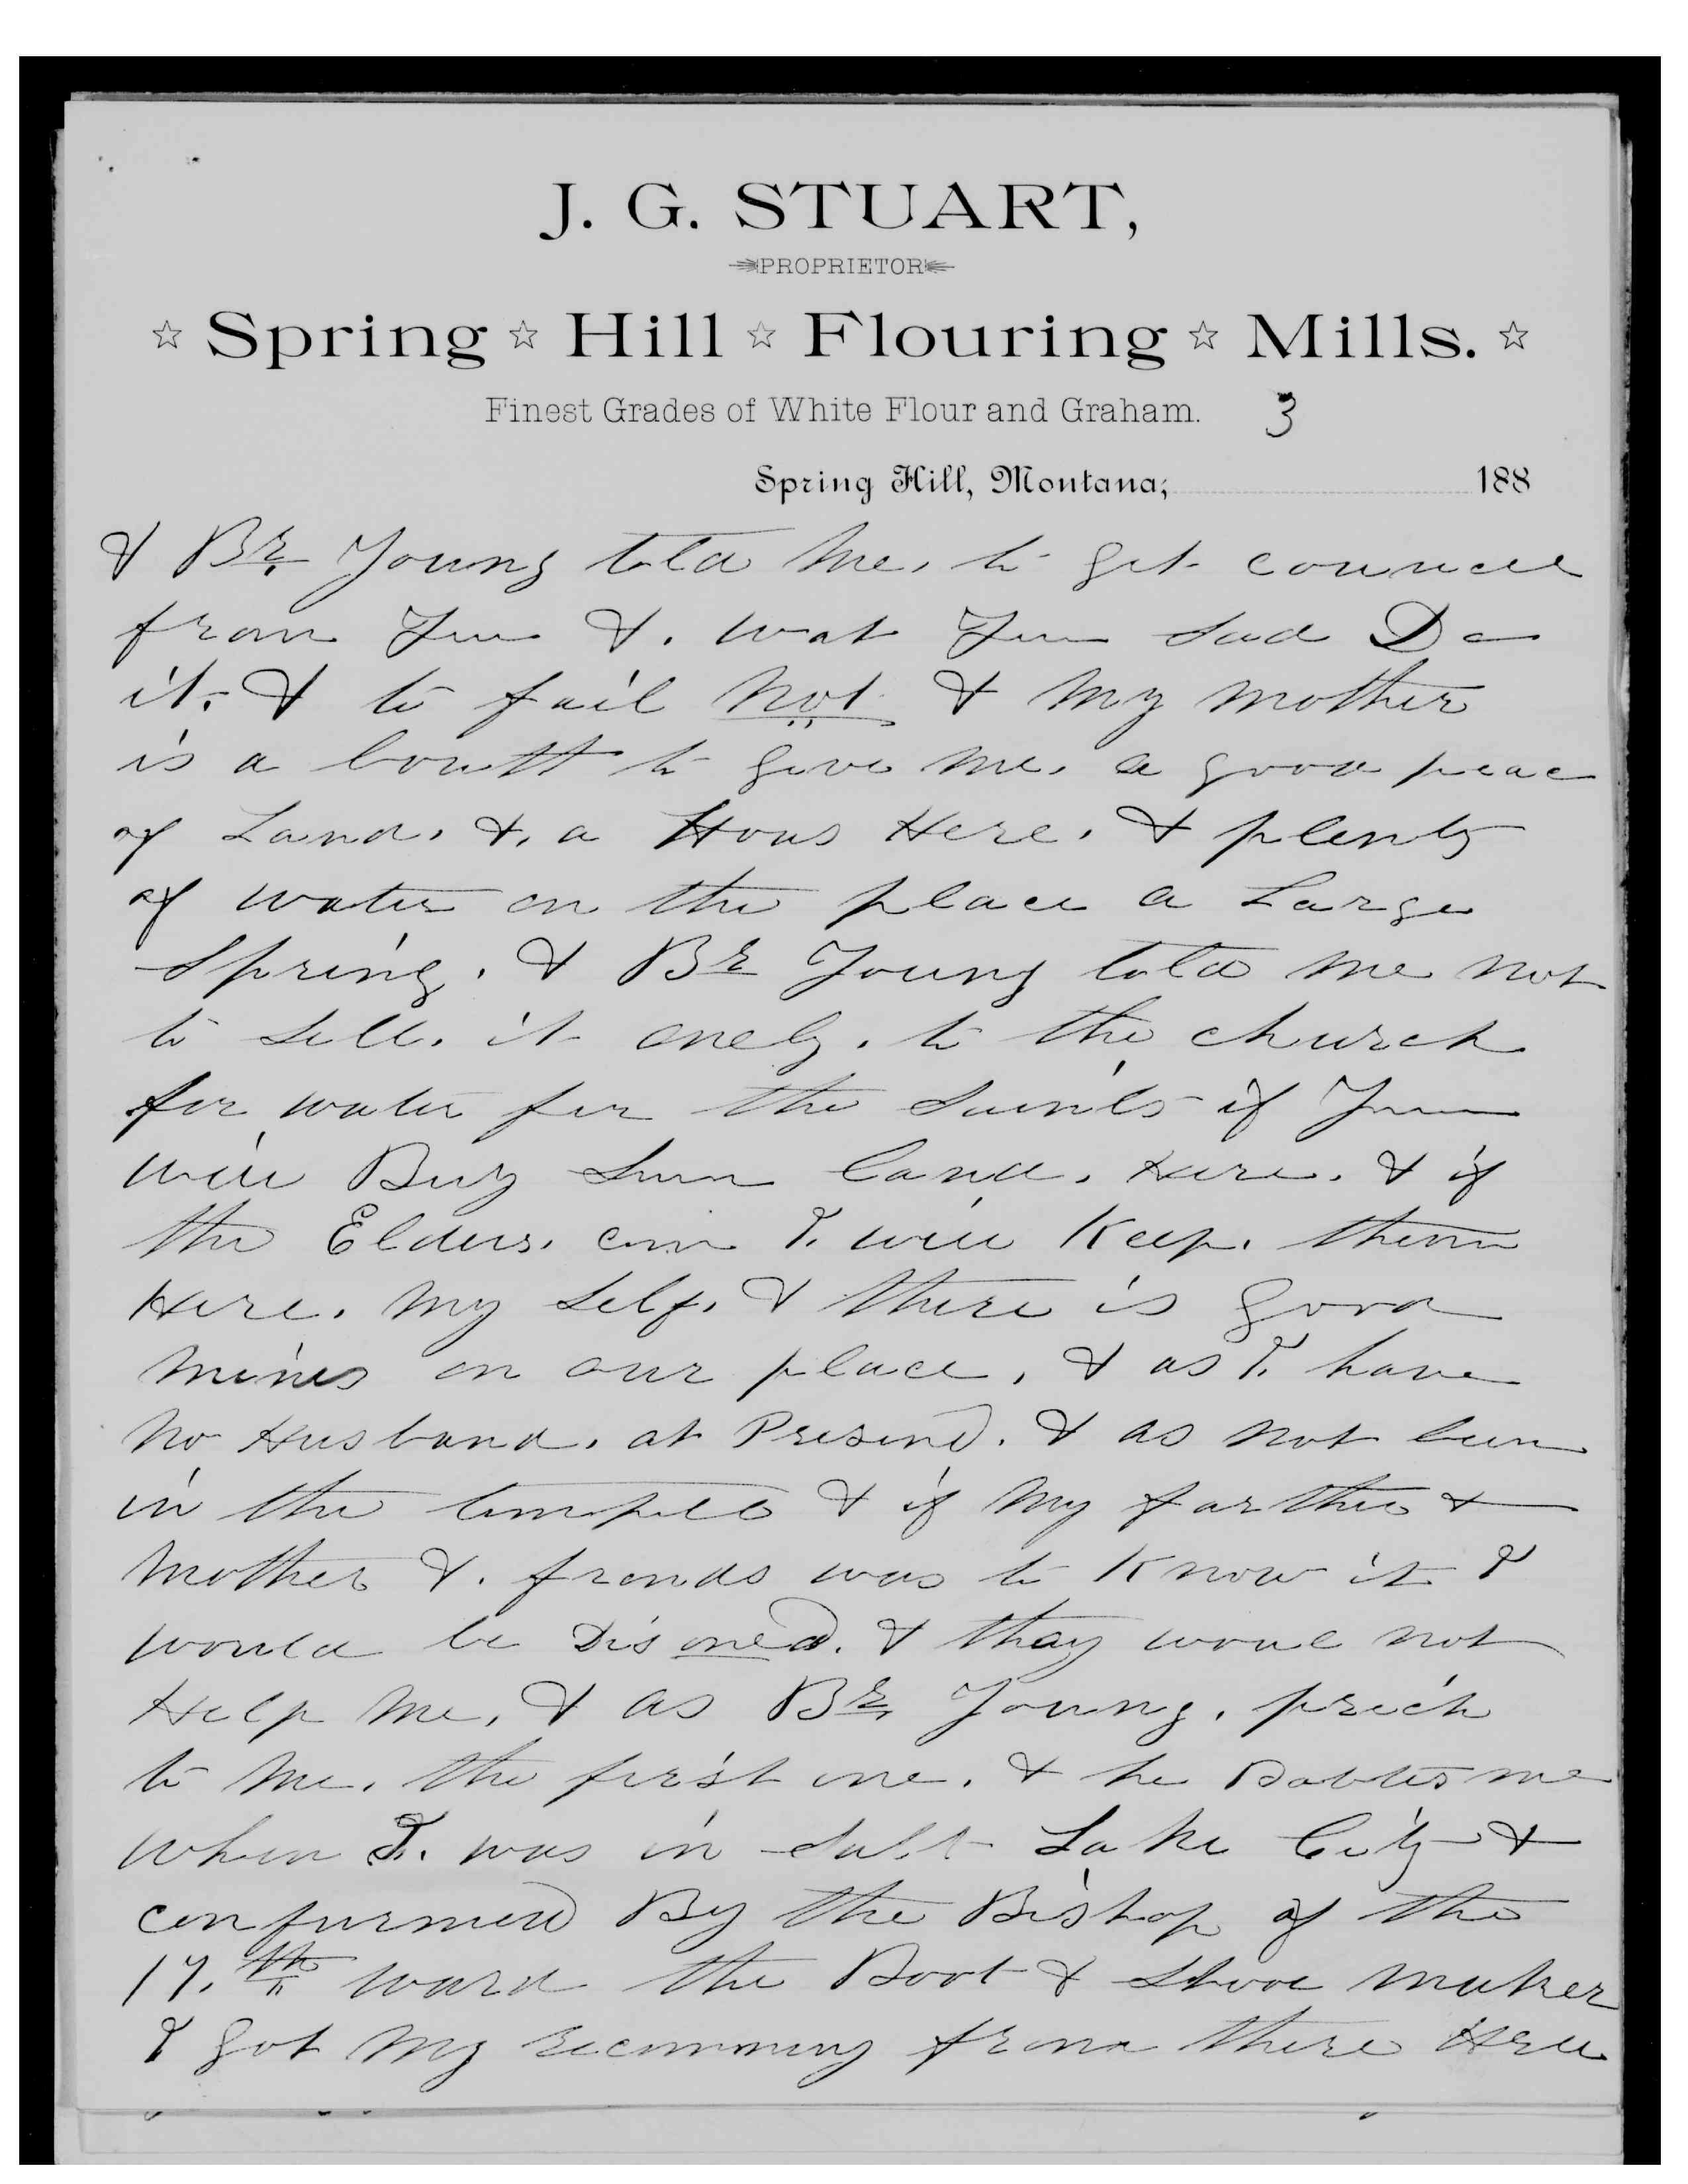 J. G. STUART,
PROPRIETOR
☆ Spring ☆ Hill ☆ Flouring ☆ Mills. ☆
Finest Grades of White Flour and Graham. 3
Spring Hill, Montana; 188
& Br. Young told me. to get councel
from You &. wat You Sad Do
it. & to fail not & my mother
is a boutt to give me. a good peac
of Land. &. a Hous Here. & plenty
of water on the place a Large
Spring. & Br Young told me not
to Sell. it onely. to the church
for water for the Saints if You
will Buy Sum land. Here. & if
the Elders. com I. will Keep. them
Here. my Self. & there is good
mines on our place, & as I. have
no Husband. at Presend. & as not been
in the tempels & if my farther &
mother &. frends was to Know it I
would be Disoned. & thay woul not
Help me, & as Br. Young. prech
to me. the first one. & he Babtes me
when I. was in Salt Lake City &
confurmed By the Bishop of the
17.th ward the Boot & Shooe maker
I got my recommeny from there Here